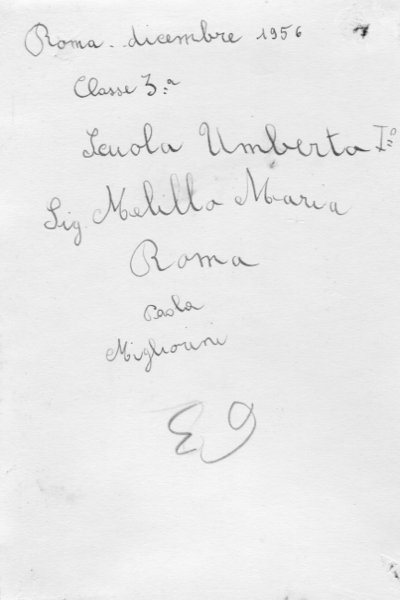 Roma. dicembre 1956
Classe 3.ª
Scuola Umberto I.º
Sig Melillo Maria
Roma
Paola
Migliorini